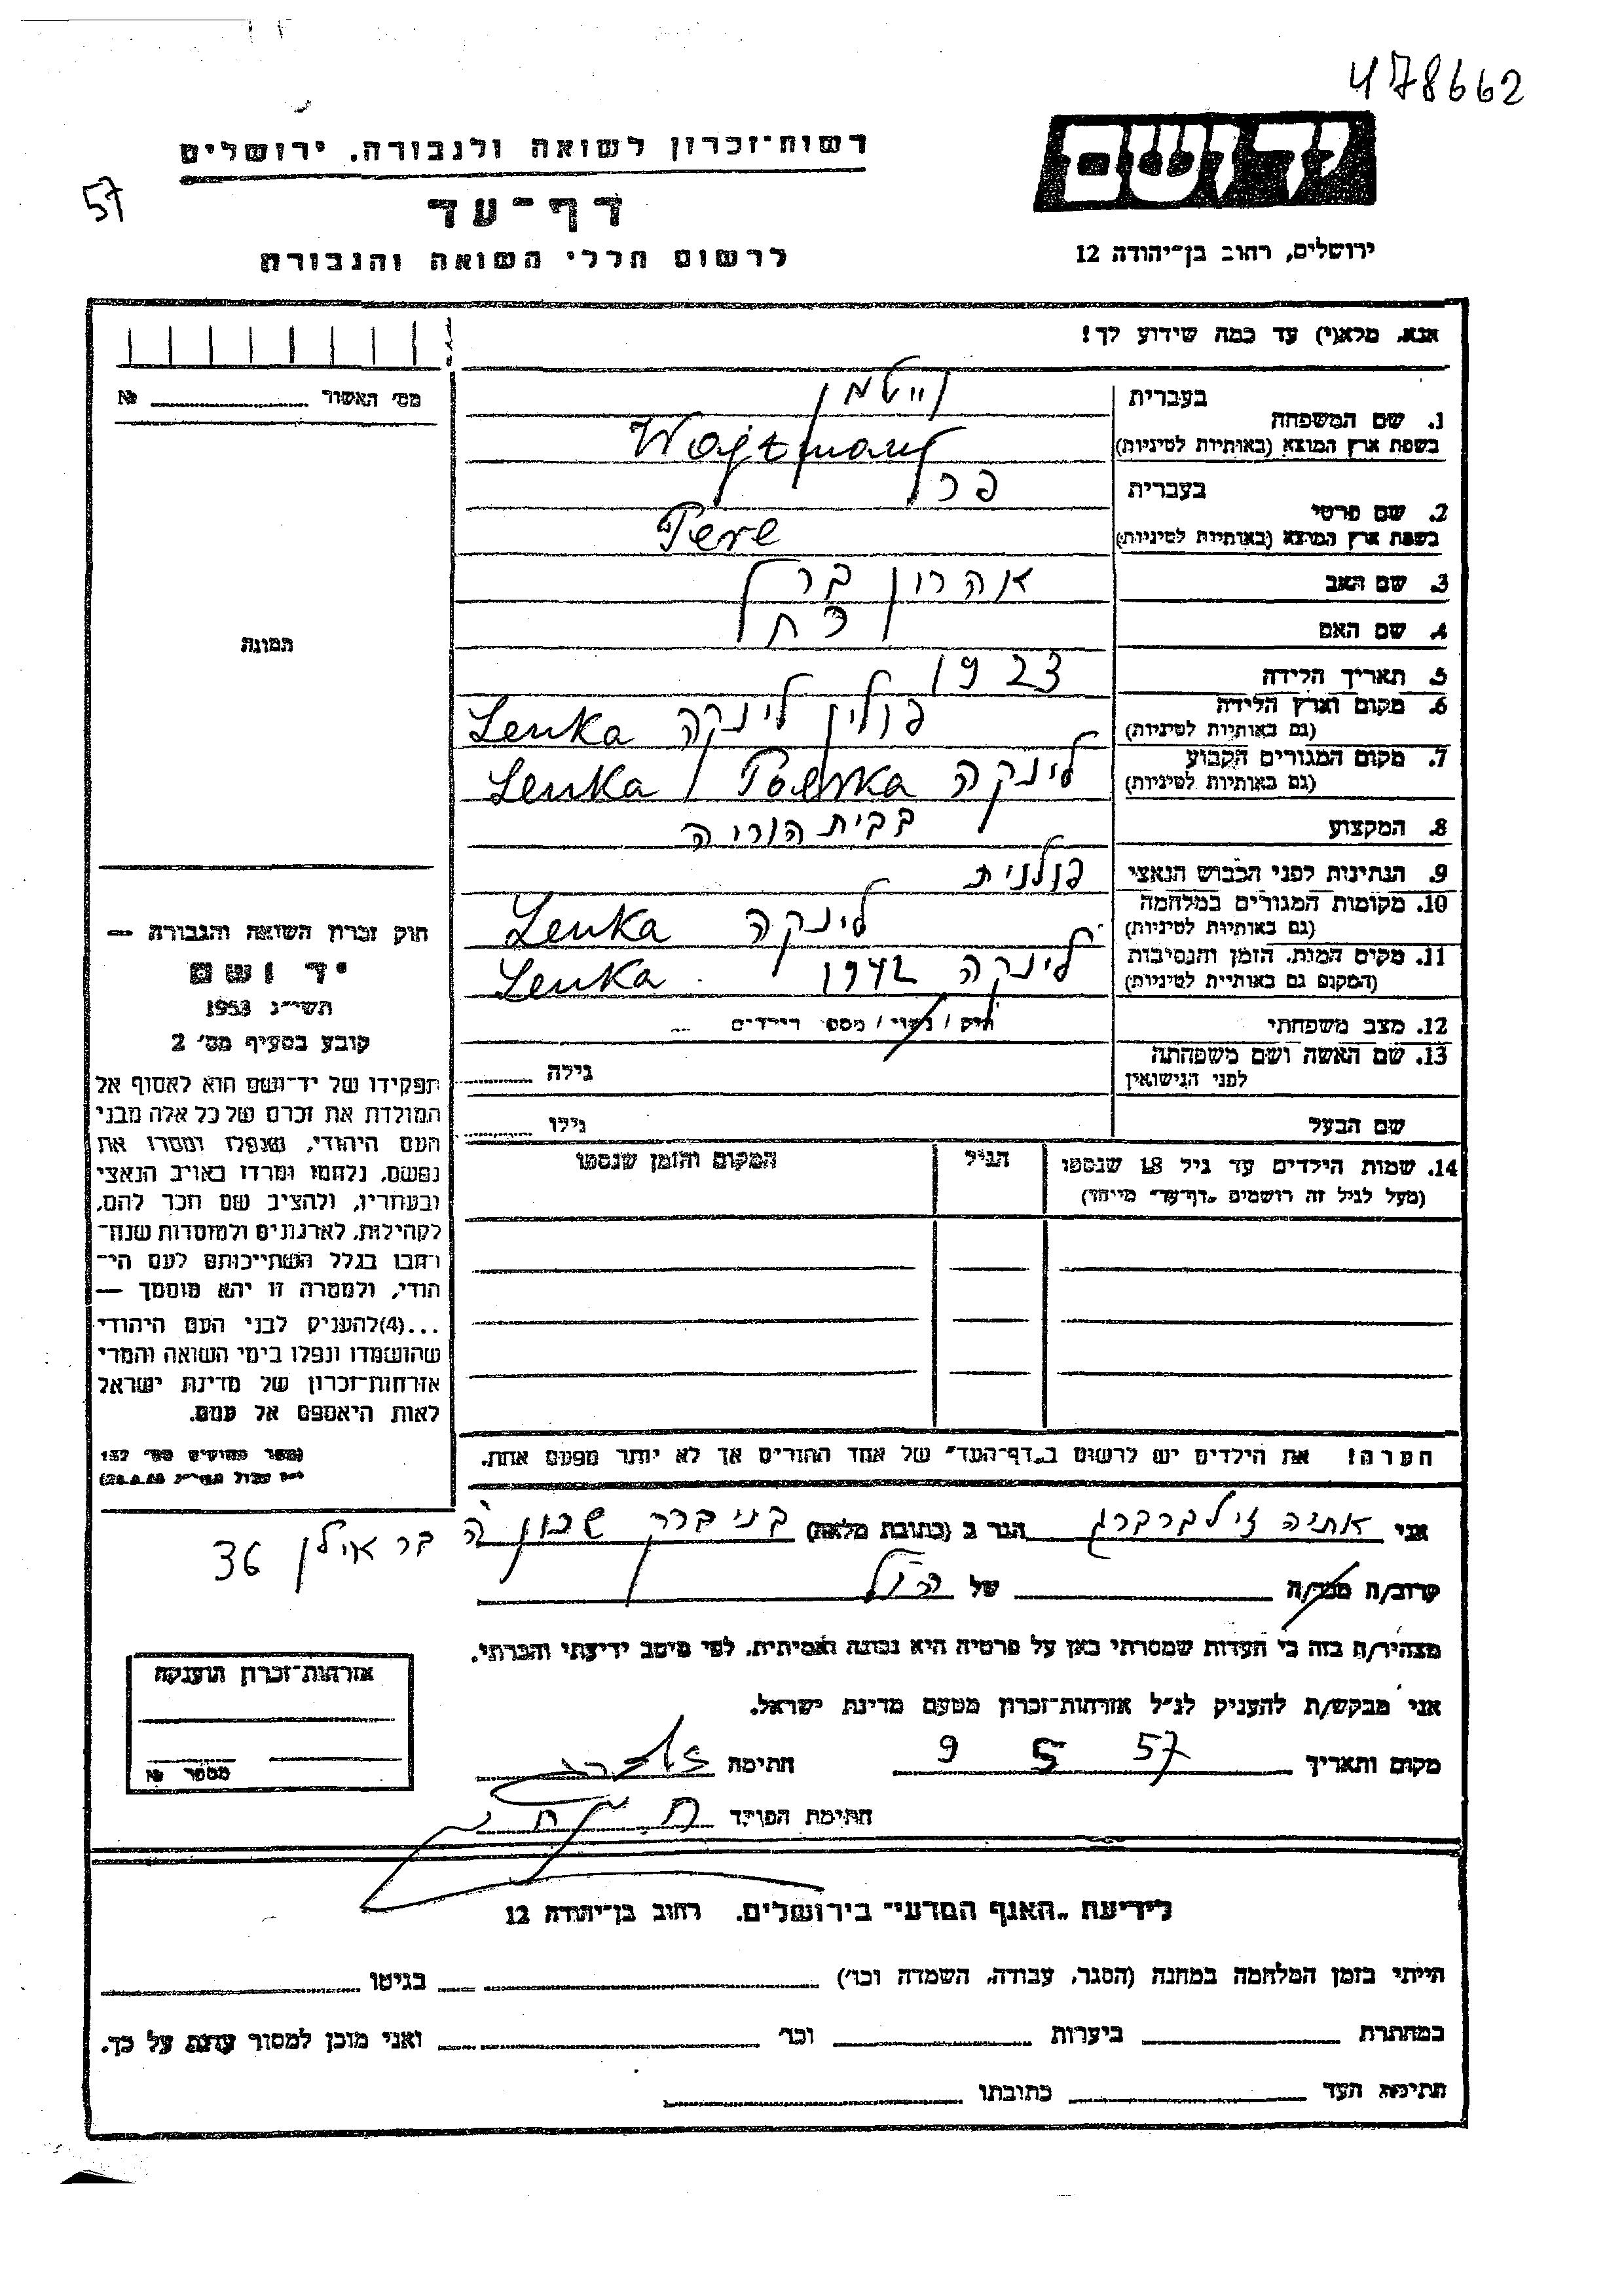 478662
יד ושם
רשות־זכרון לשואה ולגבורה, ירושלים
57
דף־עד
לרשום חללי השואה והגבורה
ירושלים, רחוב בן־יהודה 12
אנא, מלא(י) עד כמה שידוע לך!
מס' האשור № 
1. שם המשפחה
בעברית וייטמן
בשפת ארץ המוצא (באותיות לטיניות) Wajtman
2. שם פרטי
בעברית פרל
בשפת ארץ המוצא (באותיות לטיניות) Pere
3. שם האב אהרון ברל
4. שם האם רחל
5. תאריך הלידה 1923
6. מקום וארץ הלידה פולין לינקה Lenka
(גם באותיות לטיניות)
7. מקום המגורים הקבוע לינקה Lenka / Polska
(גם באותיות לטיניות)
8. המקצוע בבית הוריה
9. הנתינות לפני הכבוש הנאצי פולנית
10. מקומות המגורים במלחמה לינקה Lenka
(גם באותיות לטיניות)
11. מקום המות, הזמן והנסיבות לינקה 1942 Lenka
(המקום גם באותיות לטיניות)
12. מצב משפחתי רוק / נשוי / מספר הילדים
13. שם האשה ושם משפחתה
לפני הנישואין
גילה
שם הבעל
גילו
14. שמות הילדים עד גיל 18 שנספו
(מעל לגיל זה רושמים "דף־עד" מיוחד)
הגיל
המקום והזמן שנספו
הערה! את הילדים יש לרשום ב"דף־העד" של אחד ההורים אך לא יותר מפעם אחת.
תמונה
חוק זכרון השואה והגבורה —
יד ושם
תשי"ג 1953
קובע בסעיף מס' 2
תפקידו של יד־ושם הוא לאסוף אל
המולדת את זכרם של כל אלה מבני
העם היהודי, שנפלו ומסרו את
נפשם, נלחמו ומרדו באויב הנאצי
ובעוזריו, ולהציב שם וזכר להם,
לקהילות, לארגונים ולמוסדות שנח־
רבו בגלל השתייכותם לעם הי־
הודי, ולמטרה זו יהא מוסמך —
...(4)להעניק לבני העם היהודי
שהושמדו ונפלו בימי השואה והמרי
אזרחות־זכרון של מדינת ישראל
לאות היאספם אל עמם.
(ספר החוקים מס' 132
אני אתיה זילברברג הגר ב (כתובת מלאה) בני ברק שכון ה בר אילן 36
קרוב/ה מכר/ה של הנ"ל
מצהיר/ה בזה כי העדות שמסרתי כאן על פרטיה היא נכונה ואמיתית, לפי מיטב ידיעתי והכרתי.
אני מבקש/ת להעניק לנ"ל אזרחות־זכרון מטעם מדינת ישראל.
מקום ותאריך 9 5 57 חתימה
חתימת הפוקד
אזרחות־זכרון הוענקה
מספר №
לידיעת "האגף המדעי" בירושלים, רחוב בן־יהודה 12
הייתי בזמן המלחמה במחנה (הסגר, עבודה, השמדה וכו') בגיטו
במחתרת ביערות וכו' ואני מוכן למסור עדות על כך.
חתימת העד כתובתו